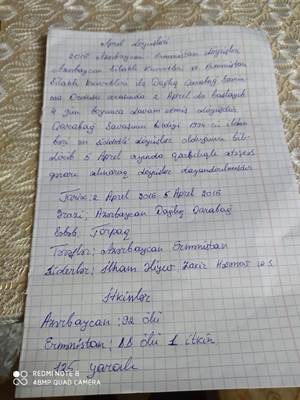 Aprel döyüşləri
2016 Azərbaycan Ermənistan döyüşləri
Azərbaycan Silahlı Quvvələri və Ermənistan
Silahlı Quvvələri ilə Dağlıq Qarabağ
Ordusu arasında 2 Aprel də başlayıb
4 gün boyunca davam etmiş döyüşlər
Qarabağ Savaşının bitdiyi 1994-cü ildən
bəri ən şiddətli döyüşlər olduğunu
5 Aprel ayında qarşılıqlı atəşkəs
qərarı alınaraq döyüşlər dayandırılmışdır
Tarix: 2 Aprel 2016 5 Aprel 2016
Ərazi; Azərbaycan Dağlıq Qarabağ
Səbəb, Torpaq
Tərəflər; Azərbaycan Ermənistan
Liderlər; İlham Əliyev, Zakir Həsənov
İtkinlər
Azərbaycan; 92 ölü
Ermənistan; ölü 1 itkin
126 yaralı
REDMI NOTE 8
48MP QUAD CAMERA